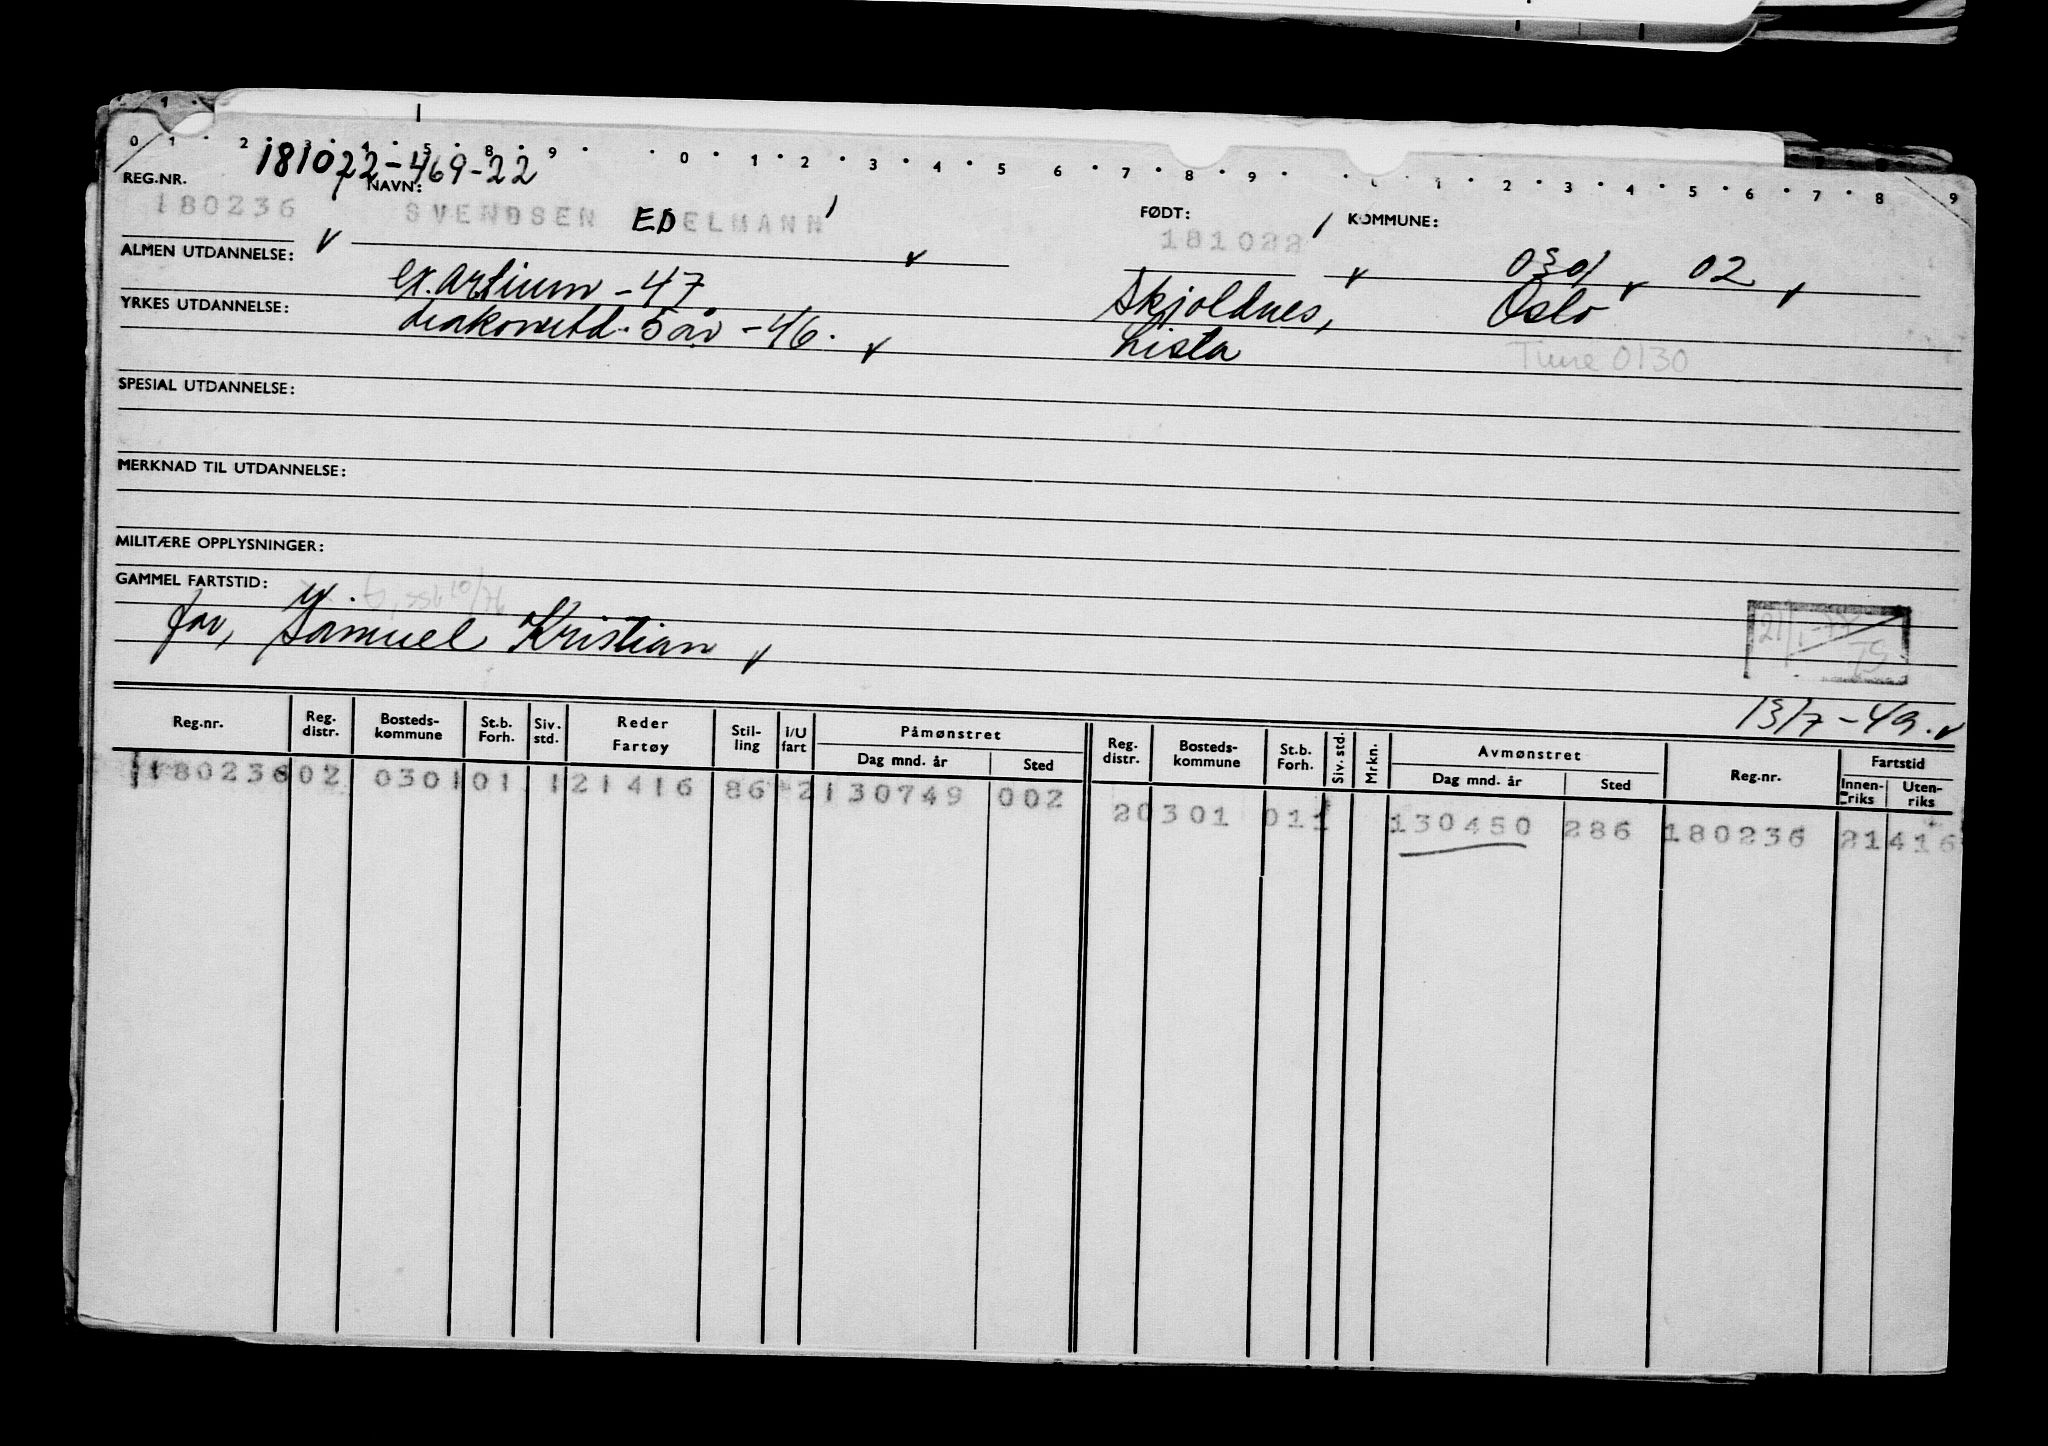 0 1 2 3 4 5 8 9 0 1 2 3 4 5 6 7 8 9 1 2 3 4 5 6 7 8 9
181022-469-22
REG.NR. NAVN: FØDT: KOMMUNE:
180236 SVENDSEN EDELMANN 181022 0301 02
ALMEN UTDANNELSE: ex. artium - 47 Skjoldnes, Oslo
YRKES UTDANNELSE: diakonutd. 5 år - 46. Lista
Time 0130
SPESIAL UTDANNELSE:
MERKNAD TIL UTDANNELSE:
MILITÆRE OPPLYSNINGER:
GAMMEL FARTSTID:
far, Samuel Kristian
21/1-77
13/7-49.
Reg.nr. Reg. distr. Bosteds-kommune St.b. Forh. Siv. std. Reder Fartøy Stil-ling i/U fart Påmønstret Dag mnd. år Sted Reg. distr. Bosteds-kommune St.b. Forh. Siv. std. Mrkn. Avmønstret Dag mnd. år Sted Reg.nr. Fartstid Innen-riks Uten-riks
180236 02 0301 01 1 21416 86 2 130749 002 2 0301 01 1 130450 286 180236 21416